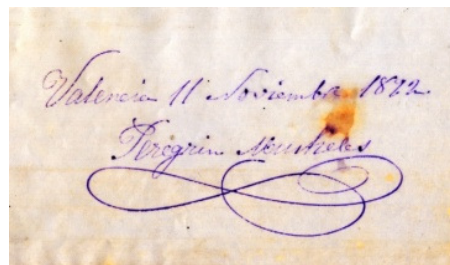 Valencia 11 Noviembre 1822
Peregrin Mustieles